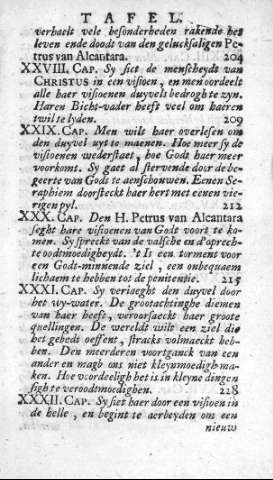 TAFEL.
verhaelt vele besonderheden rakende het
leven ende doodt van den gelucksaligen Pe-
trus van Alcantara. 204
XXVIII. CAP. Sy siet de menscheydt van
CHRISTUS in een visioen, en men oordeelt
alle haer visioenen duyvels bedrogh te zyn.
Haren Bicht-vader heeft veel om haren
twil te lyden. 209
XXIX. CAP. Men wilt haer overlesen om
den duyvel uyt te maenen. Hoe meer sy de
visioenen wederstaet, hoe Godt haer meer
voorkomt. Sy gaet al stervende door de be-
geerte van Godt te aenschouwen. Eenen Se-
raphiem doorsteckt haer hert met eenen vie-
rigen pyl. 212
XXX. CAP. Den H. Petrus van Alcantara
seght hare visioenen van Godt voort te ko-
men. Sy spreckt van de valsche en d'oprech-
te ootmoedigheydt. 't Is een torment voor
een Godt-minnende ziel, een onbequaem
lichaem te hebben tot de penitentie. 215
XXXI. CAP. Sy verjaeght den duyvel door
het wy-water. De grootachtinghe diemen
van haer heeft, veroorsaeckt haer groote
quellingen. De wereldt wilt een ziel die
het gebedt oeffent, stracks volmaeckt heb-
ben. Den meerderen voortganck van een
ander en magh ons niet kleynmoedigh ma-
ken. Hoe voordeeligh het is in kleyne dingen
sigh te verootmoedighen. 228
XXXII. CAP. Sy siet haer door een visioen in
de helle, en begint te aerbeyden om een
nieuw